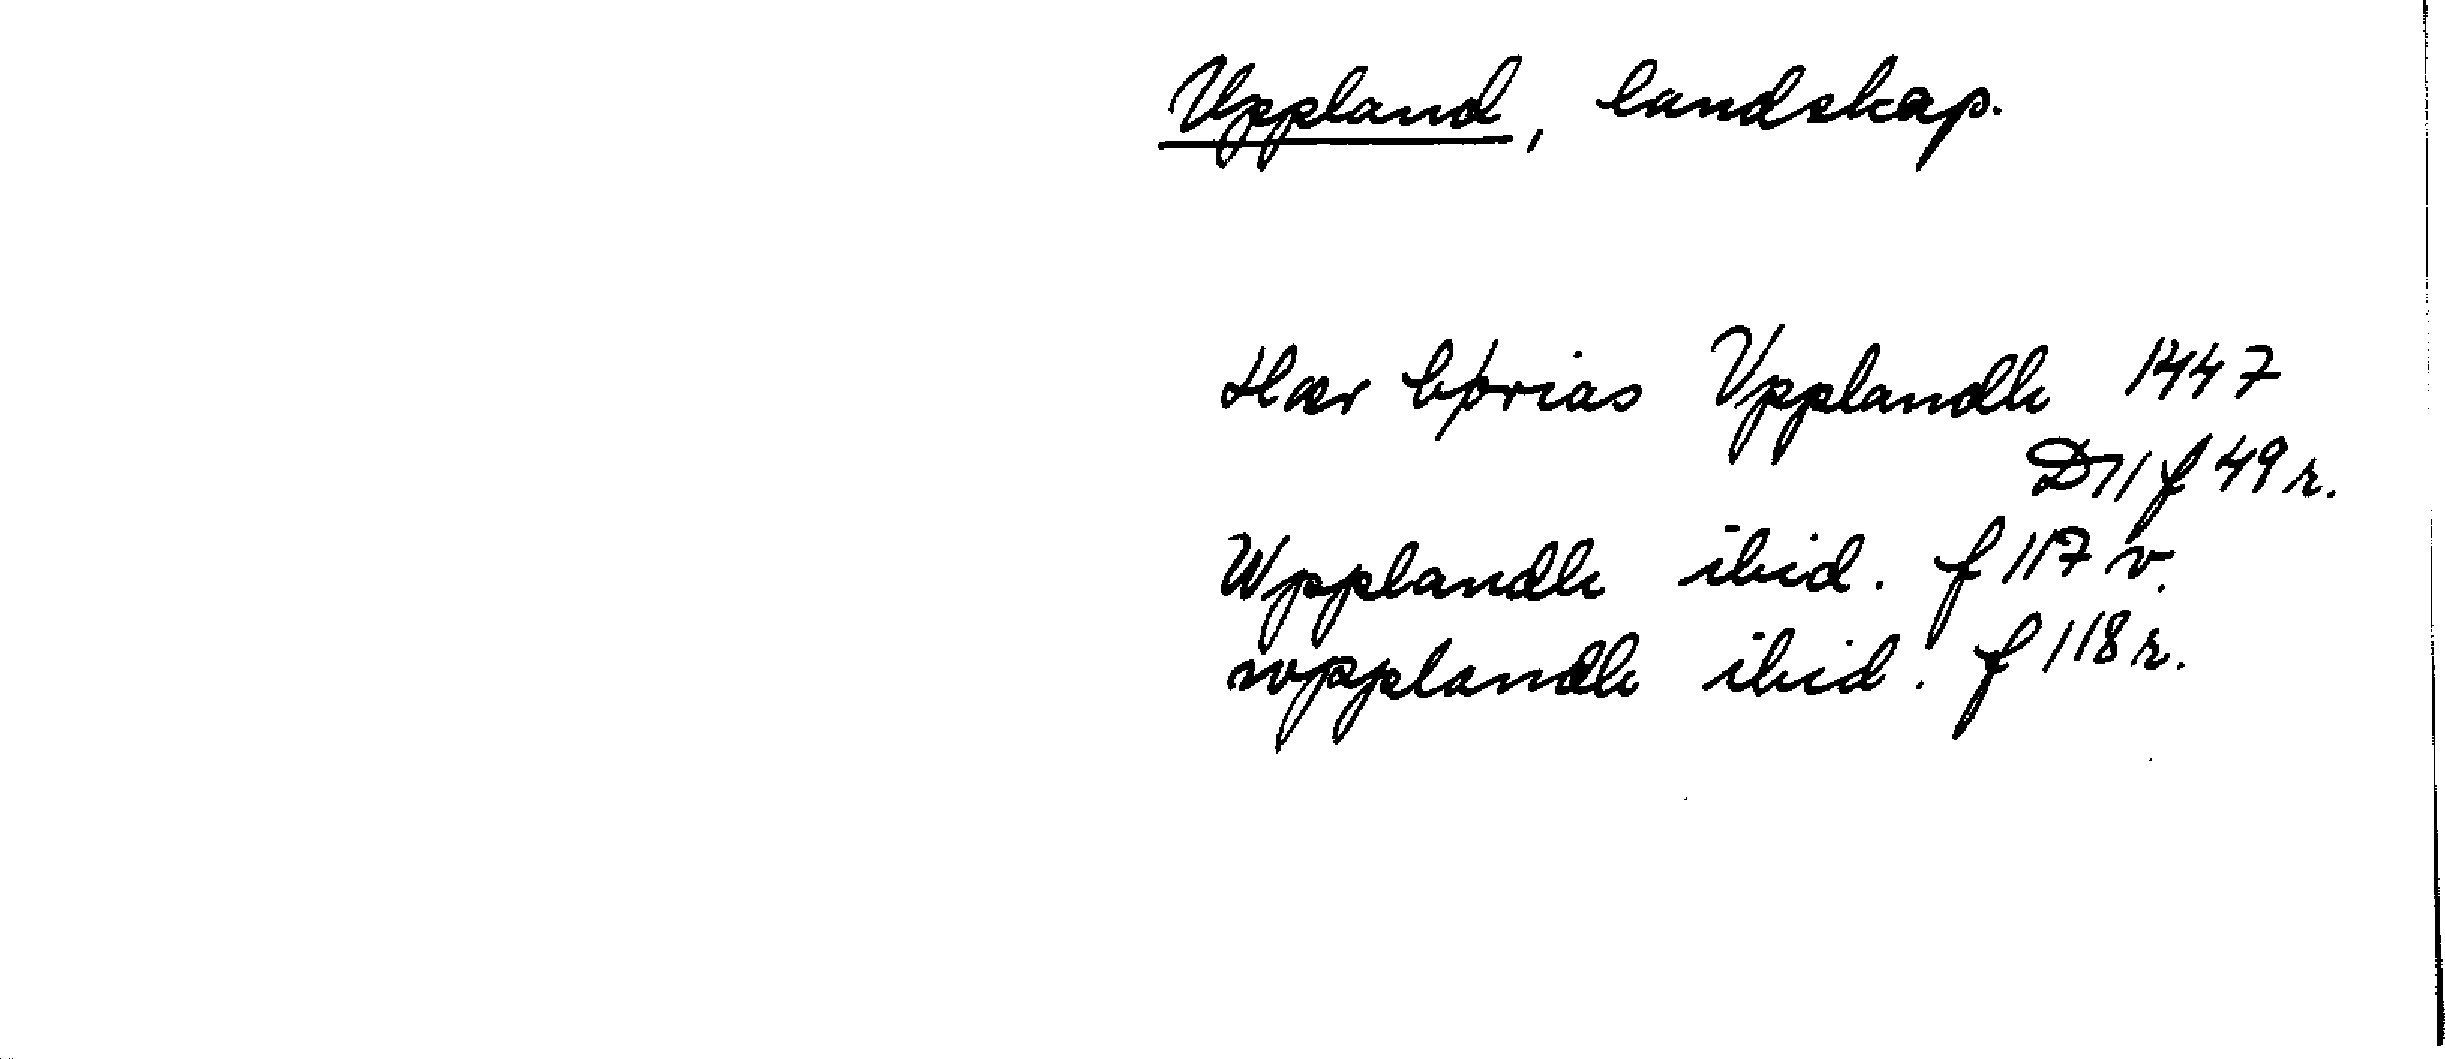 Uppland, landskap.
Hær børias Vpplandh 1447
D11 f 49 r.
Wpplandh ibid. f 117 v.
wpplandh ibid. f 118 r.